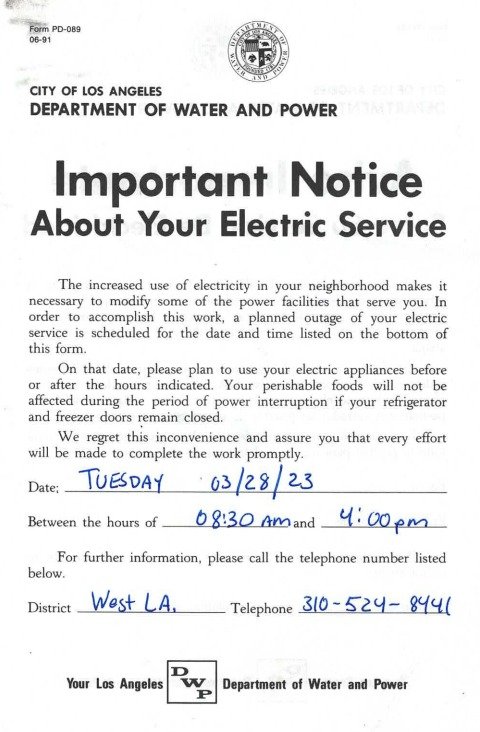 Form PD-089
06-91
CITY OF LOS ANGELES
DEPARTMENT OF WATER AND POWER
Important Notice
About Your Electric Service
The increased use of electricity in your neighborhood makes it
necessary to modify some of the power facilities that serve you. In
order to accomplish this work, a planned outage of your electric
service is scheduled for the date and time listed on the bottom of
this form.
On that date, please plan to use your electric appliances before
or after the hours indicated. Your perishable foods will not be
affected during the period of power interruption if your refrigerator
and freezer doors remain closed.
We regret this inconvenience and assure you that every effort
will be made to complete the work promptly.
Date; TUESDAY 03/28/23
Between the hours of 08:30 Am and 4:00 pm
For further information, please call the telephone number listed
below.
District West LA. Telephone 310-524-8441
Your Los Angeles DWP Department of Water and Power